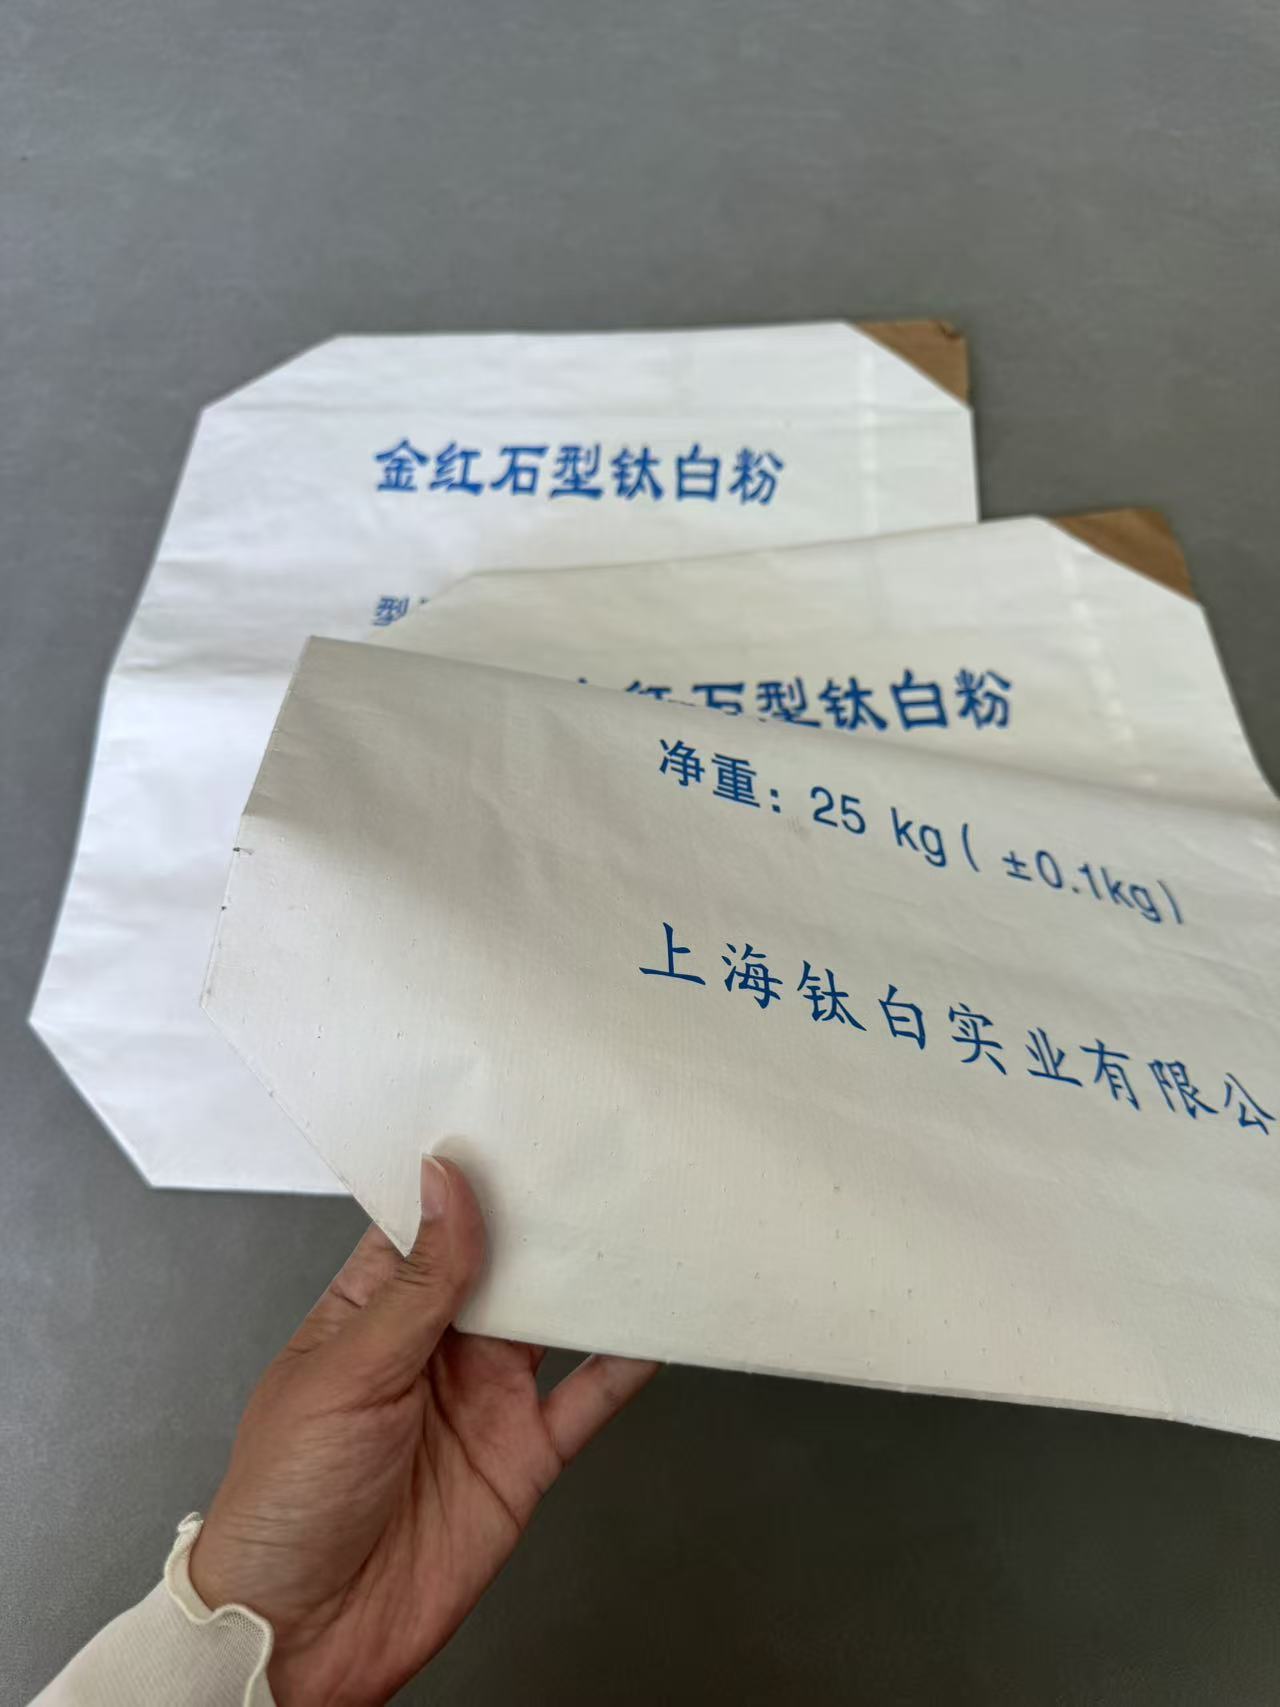 金红石型钛白粉
型
红石型钛白粉
净重：25 kg（±0.1kg）
上海钛白实业有限公